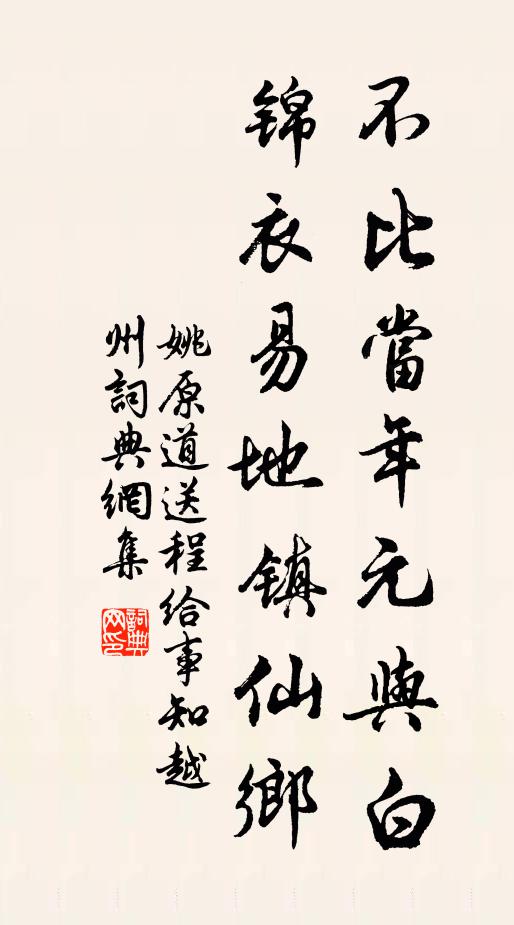 不比當年元與白
锦衣易地镇仙鄉
姚原道送程给事知越
州詞典網集
詞典
网印